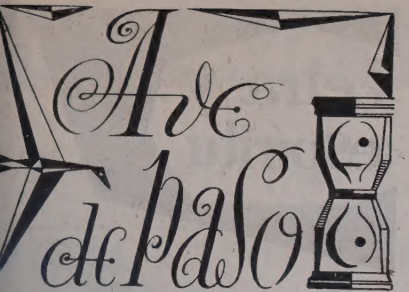 Ave
de paso